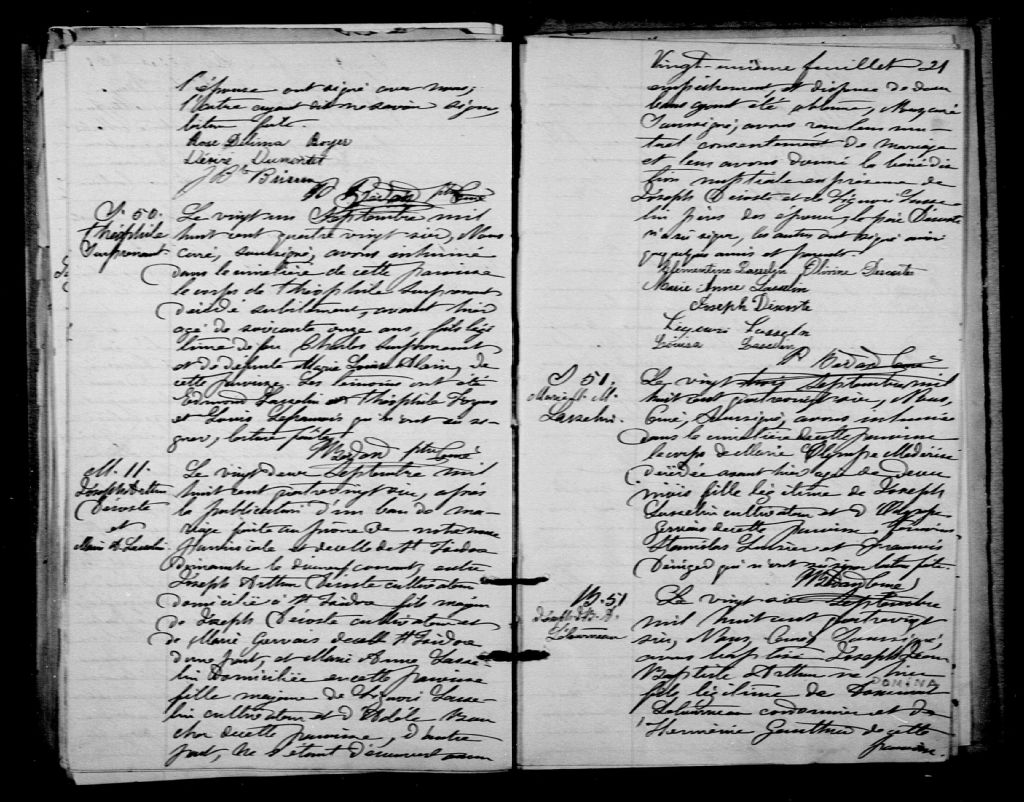 l'épouse ont signé avec nous,
l'autre ayant dit ne savoir signer,
lecture faite.
Rose Delima Royer
Désiré Dumontet
J Bte
P. Bédard ptre Curé
S. 50.
Théophile
Surprenant.
Le vingt un Septembre mil
huit cent quatre vingt six, Nous
Curé, soussigné, avons inhumé
dans le cimetière de cette paroisse
le corps de Théophile Surprenant
décédé subitement, avant hier
agé de soixante onze ans, fils légi
time de feu Charles Surprenant
et de défunte Marie Louise, de
cette paroisse. Les témoins ont été
Edmond et Théophile
et Louis qui n'ont su si-
gner, lecture faite.
P. Bédard ptre Curé
M. 11.
Joseph Arthur
Décoste
et
Marie A. Lasselin.
Le vingt deux Septembre mil
huit cent quatrevingt six, après
la publication d'un ban de ma-
riage faite au prône de notre messe
paroissiale et de celle de St Isidore
dimanche le dixneuf courant, entre
Joseph Arthur Décoste cultivateur
domicilié à St Isidore fils majeur
de Joseph Décoste cultivateur et
de Marie Gervais de celle St Isidore
d'une part, et Marie Anne Lasse-
lin domiciliée en cette paroisse
fille majeure de Liguori Lasse-
lin cultivateur et d'Adèle Beau
de cette paroisse, d'autre
part, ne s'étant découvert aucun
Vingt-unième feuillet 21
empêchement, et dispense de deux
bans ayant été obtenue, Nous, curé
Soussigné, avons reçu leur mu-
tuel consentement de mariage
et leur avons donné la bénédic
tion nuptiale en présence de
Joseph Décoste et de Liguori Lasse-
lin pères des époux, le père Décoste
n'a su signer, les autres ont signé ainsi
que quelques amis et parents.
Clémentine Lasselin Olivine Decoste
Marie Anne Lasselin
Joseph Décoste
Liguori Lasselin
Louisa Lasselin
P. Bédard Curé
S. 51.
Marie O. M.
Lasselin.
Le vingt trois Septembre mil
huit cent quatrevingt six, Nous,
Curé, Soussigné, avons inhumé
dans le cimetière de cette paroisse
le corps de Marie Olympe Médérise
décédée avant hier agée de deux
mois fille légitime de Joseph
Lasselin cultivateur et d'Olympe
Gervais de cette paroisse, témoins
Stanislas et François
qui n'ont su signer lecture faite.
P. Bédard Curé
B. 51
Joseph J. B. A.
Le vingt six Septembre
mil huit cent quatrevingt
six, Nous, Curé, Soussigné,
avons baptisé Joseph Jean
Baptiste Arthur né hier
fils légitime de
DOMINA
cordonnier et de
Herménie Gauthier de cette
paroisse.